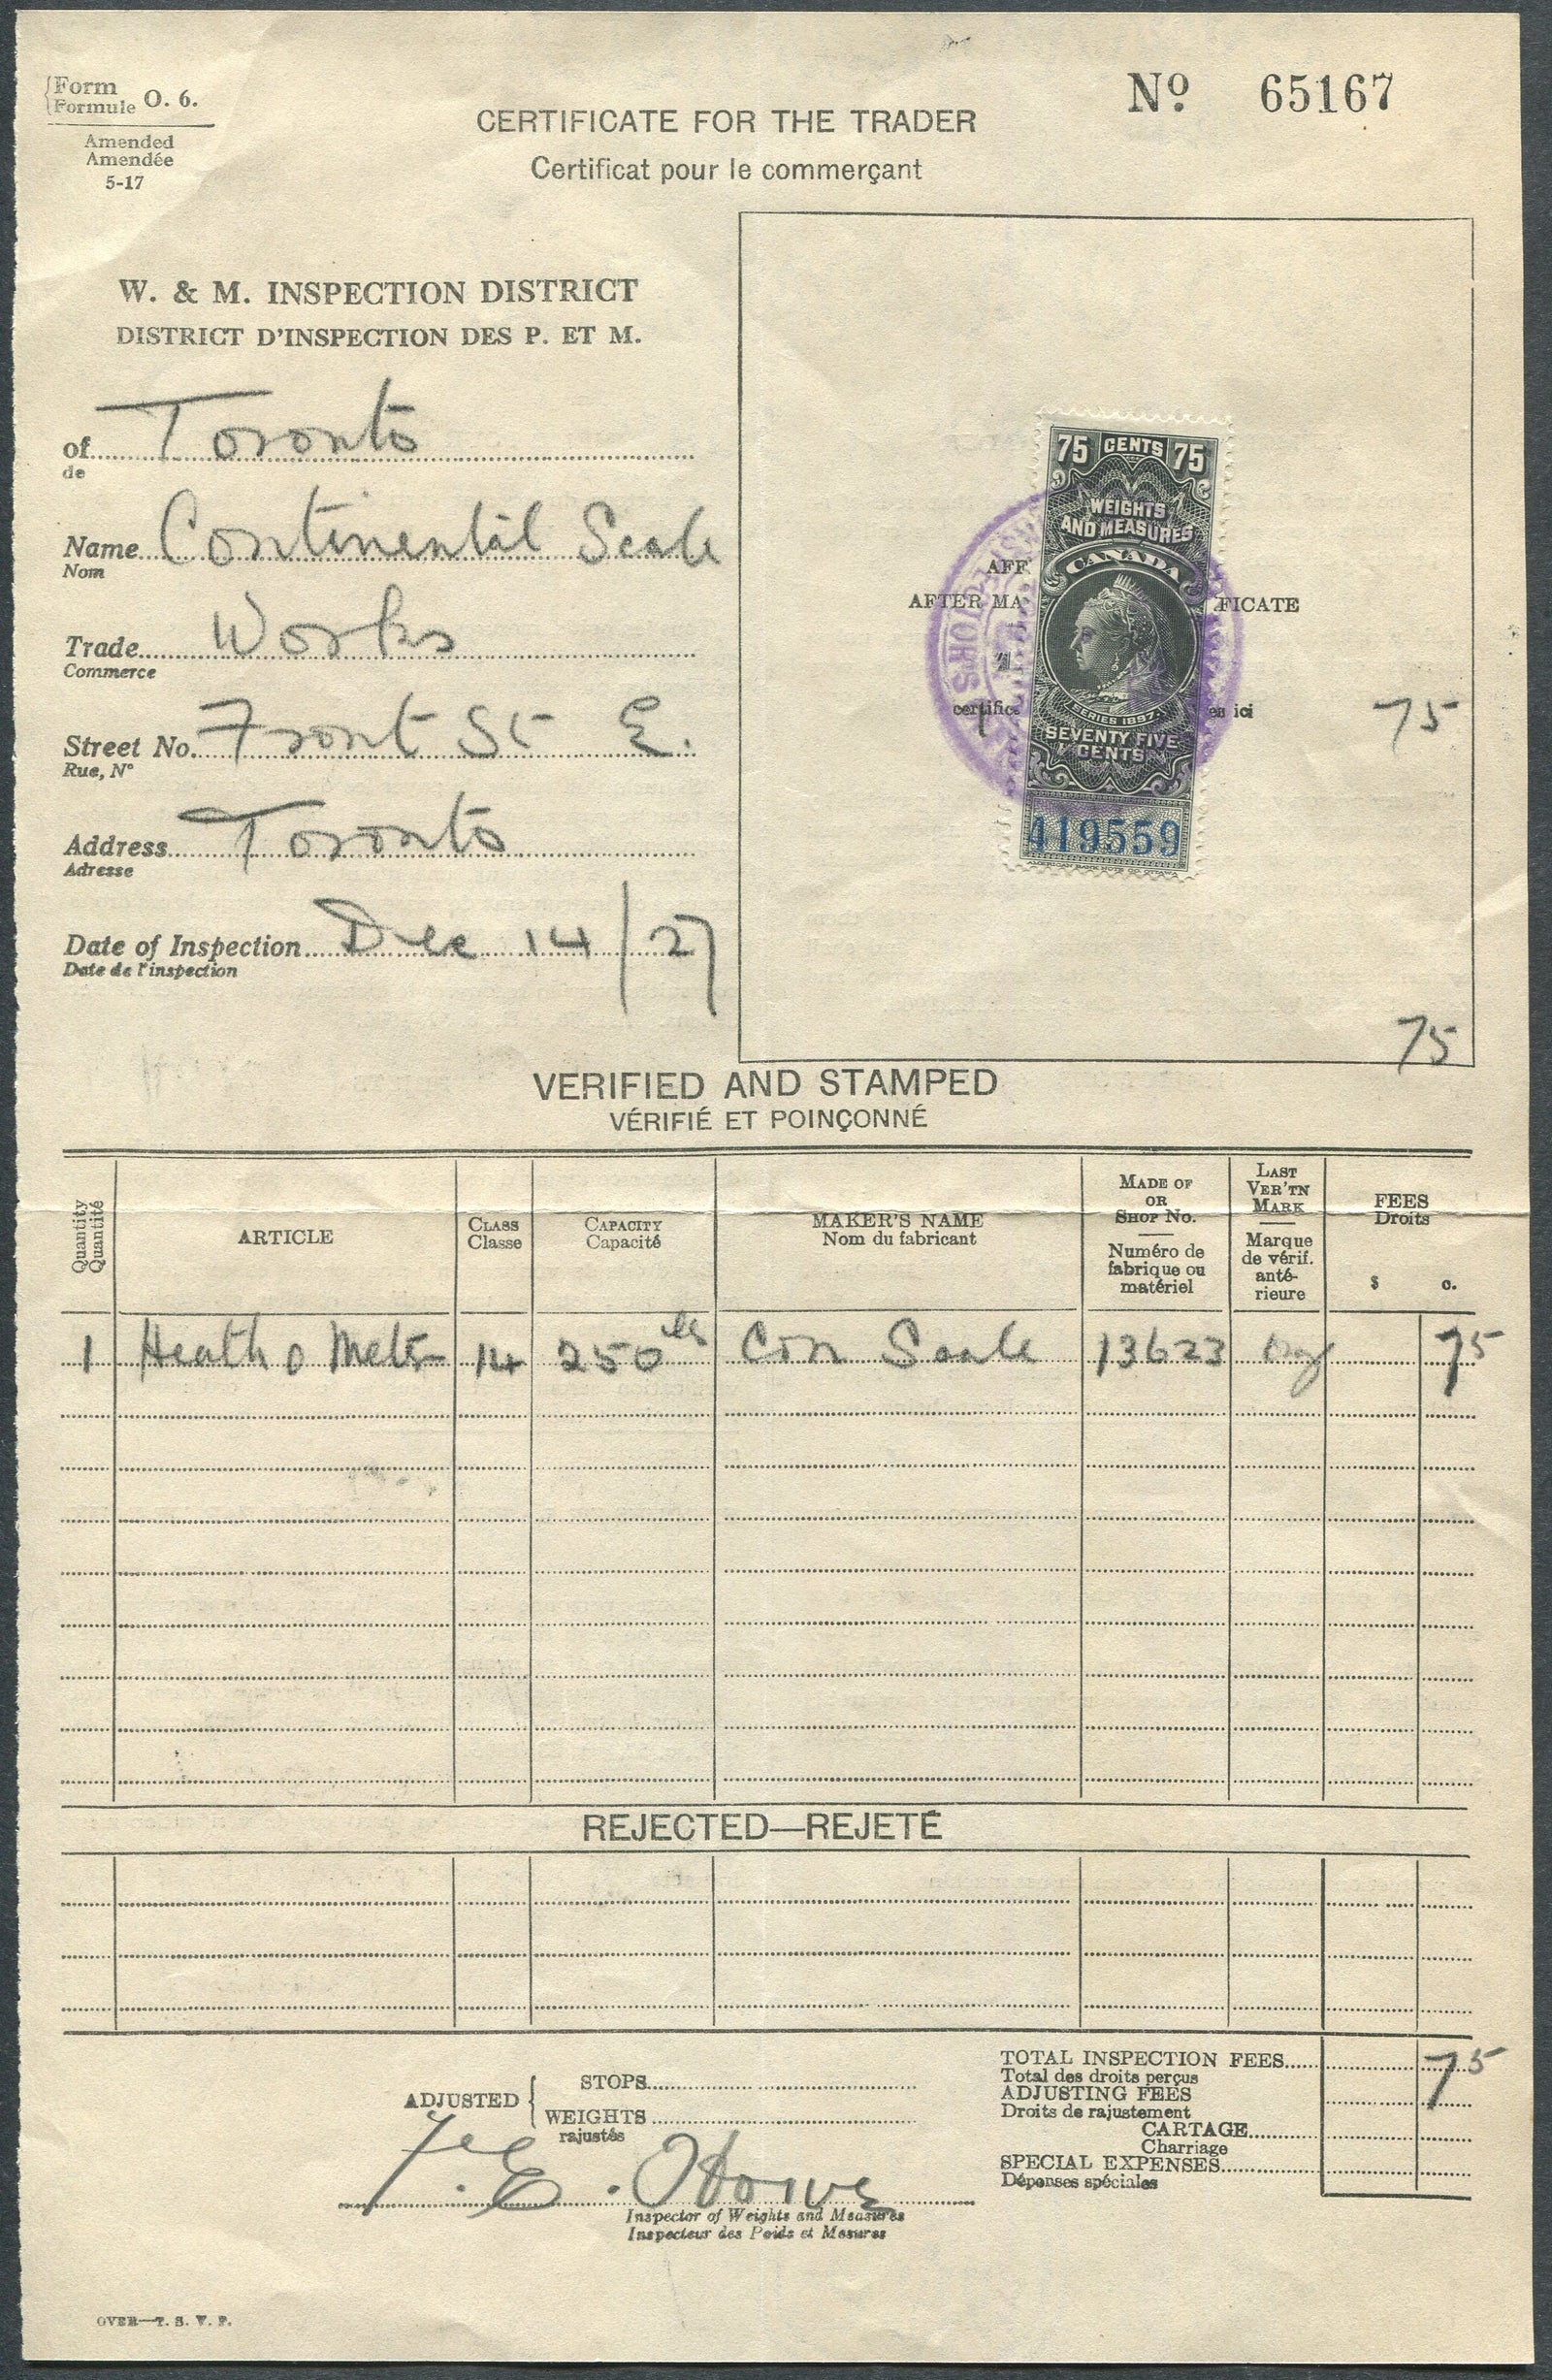 Form
Formule O. 6.
Amended
Amendée
5-17
CERTIFICATE FOR THE TRADER
Certificat pour le commerçant
No. 65167
W. & M. INSPECTION DISTRICT
DISTRICT D'INSPECTION DES P. ET M.
of Toronto
de
Name Continental Scale
Nom
Trade Works
Commerce
Street No. Front St E.
Rue, N°
Address Toronto
Adresse
Date of Inspection Dec 14/27
Date de l'inspection
75 CENTS 75
WEIGHTS
AND MEASURES
CANADA
SERIES 1897
SEVENTY FIVE
CENTS
419559
AMERICAN BANK NOTE CO. OTTAWA
AFF
AFTER MA FICATE
certific es ici
75
75
VERIFIED AND STAMPED
VÉRIFIÉ ET POINÇONNÉ
Quantity
Quantité
ARTICLE
CLASS
Classe
CAPACITY
Capacité
MAKER'S NAME
Nom du fabricant
MADE OF
OR
SHOP No.
Numéro de
fabrique ou
matériel
LAST
VER'TN
MARK
Marque
de vérif.
anté-
rieure
FEES
Droits
$ c.
1 Health o Meter 14 250 lbs Con Scale 13623 75
REJECTED—REJETÉ
ADJUSTED
STOPS
WEIGHTS
rajustés
TOTAL INSPECTION FEES 75
Total des droits perçus
ADJUSTING FEES
Droits de rajustement
CARTAGE
Charriage
SPECIAL EXPENSES
Dépenses spéciales
Inspector of Weights and Measures
Inspecteur des Poids et Mesures
OVER—T. S. V. P.